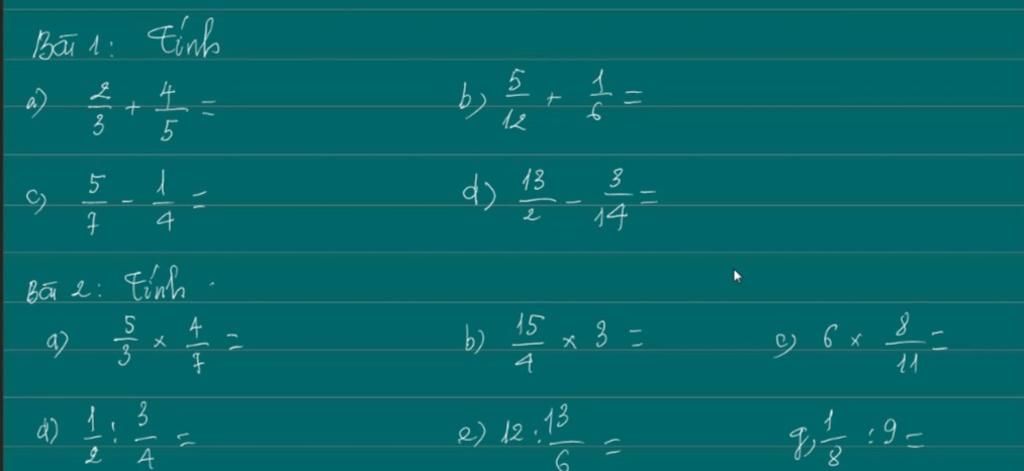 Bài 1: Tính
a) 2/3 + 4/5 = b) 5/12 + 1/6 =
c) 5/7 - 1/4 = d) 13/2 - 3/14 =
Bài 2: Tính
a) 5/3 × 4/7 = b) 15/4 × 3 = c) 6 × 8/11 =
d) 1/2 : 3/4 = e) 12 : 13/6 = g) 1/8 : 9 =